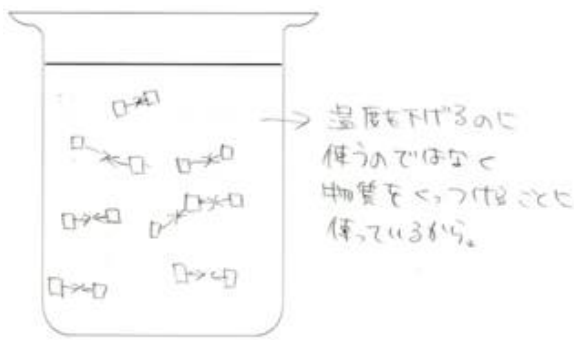 温度を下げるのに
使うのではなく
物質をくっつけることに
使っているから。